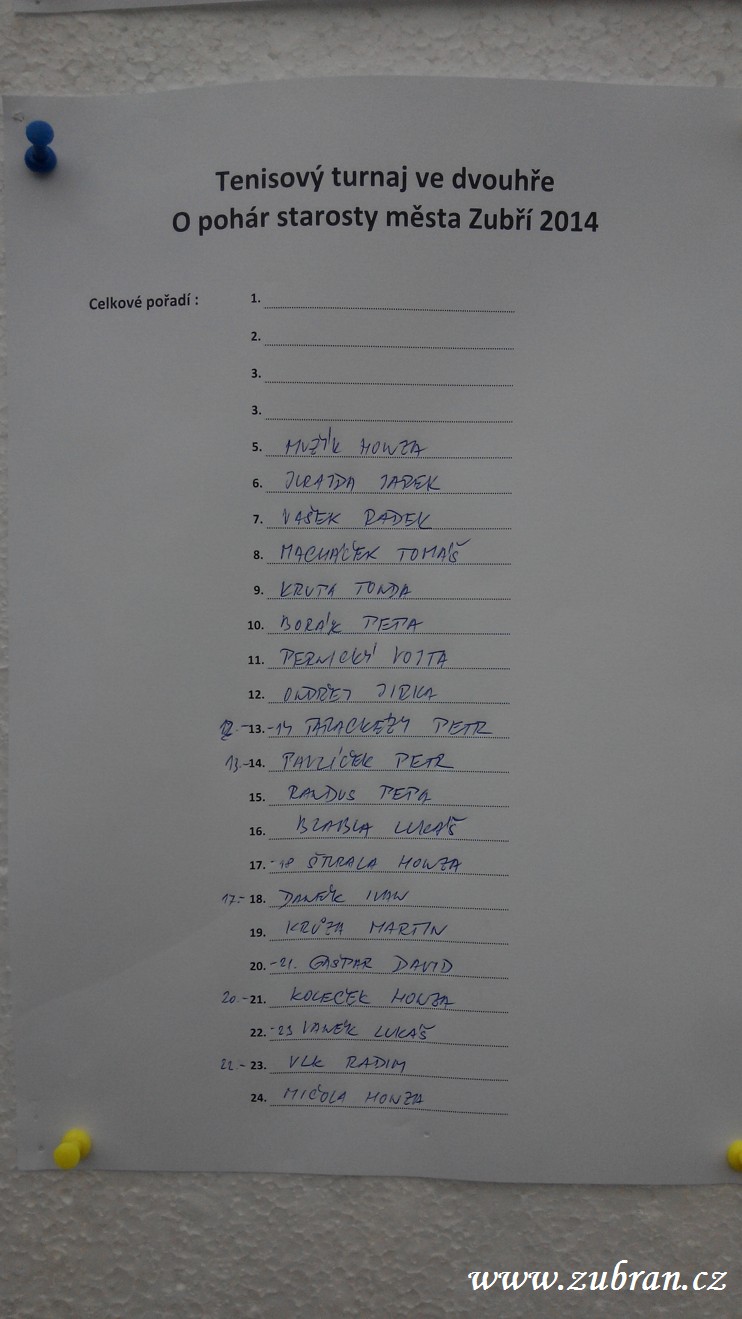 Tenisový turnaj ve dvouhře
O pohár starosty města Zubří 2014
Celkové pořadí : 1.
2.
3.
3.
5. MUŽÍK HONZA
6. JURAJDA JAREK
7. VAŠEK RADEK
8. MACHÁČEK TOMÁŠ
9. KRUTA TONDA
10. BORÁK PEPA
11. PERNICKÝ VOJTA
12. ONDŘEJ JIRKA
13. -14 PETR
13.-14. PAVLÍČEK PETR
15. RANDUS PEPA
16. BLABLA LUKÁŠ
17. -18 HONZA
17.- 18. DANĚK IVAN
19. KRŮŽA MARTIN
20. -21. GAŠPAR DAVID
20.-21. KOLEČEK HONZA
22. -23 VANĚK LUKÁŠ
22.- 23. VLK RADIM
24. MIČOLA HONZA
www.zubran.cz